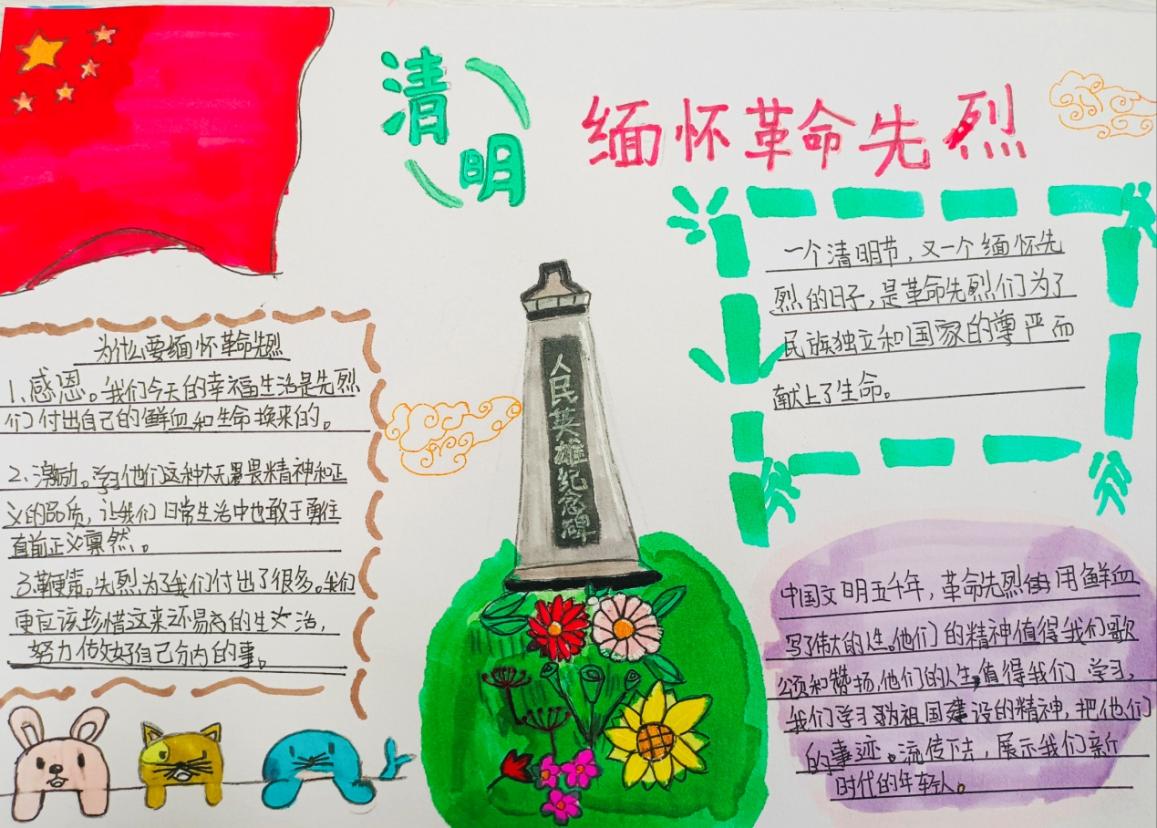 清明
缅怀革命先烈
一个清明节，又一个缅怀先
烈的日子，是革命先烈们为了
民族独立和国家的尊严而
献上了生命。
人民英雄纪念碑
为什么要缅怀革命先烈
1、感恩。我们今天的幸福生活是先烈
们付出自己的鲜血和生命换来的。
2、激励。学习他们这种大无畏精神和正
义的品质，让我们日常生活中也敢于勇往
直前正义凛然。
3、鞭策。先烈为了我们付出了很多。我们
更应该珍惜这来之不易的生活，
努力做好自己分内的事。
中国文明五千年，革命先烈用鲜血
写了伟大的人生。他们的精神值得我们歌
颂和赞扬，他们的人生，值得我们学习，
我们学习为祖国建设的精神，把他们
的事迹。流传下去，展示我们新
时代的年轻人。